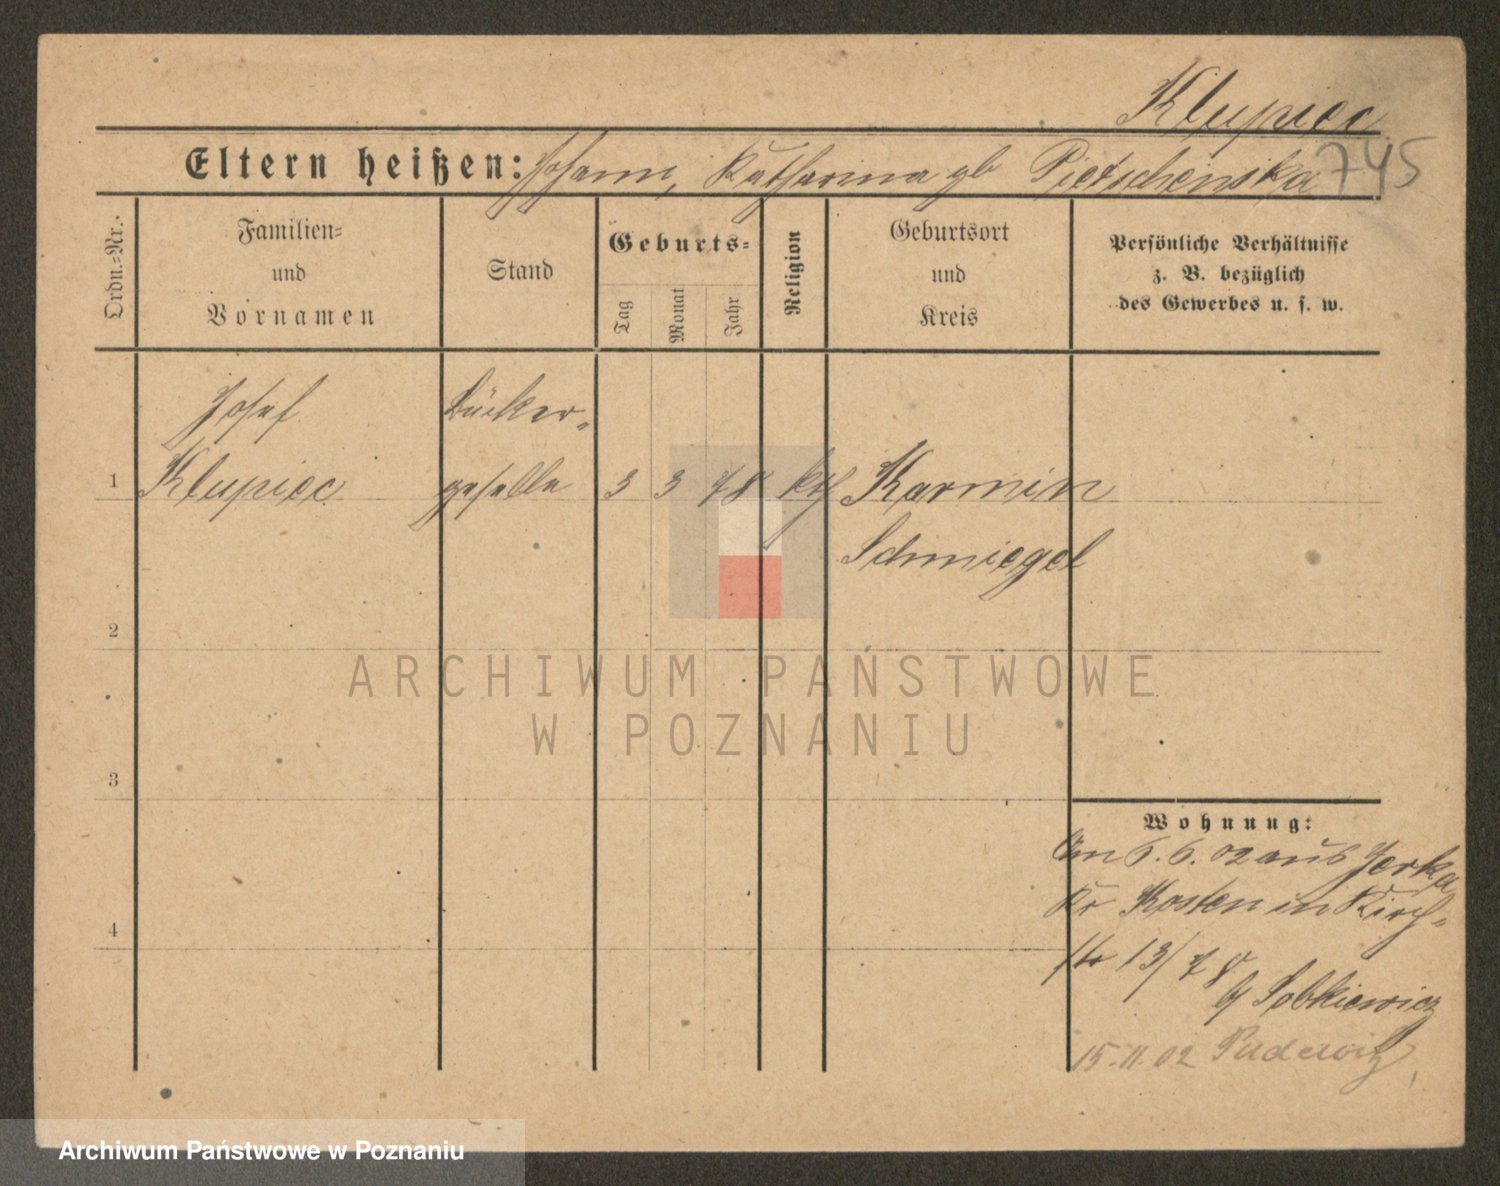 Klupiec
Eltern heißen: Johann, Katharina gb Pietschenska
745
Ordn.-Nr.
Familien-
und
Vornamen
Stand
Geburts-
Tag
Monat
Jahr
Religion
Geburtsort
und
Kreis
Persönliche Verhältnisse
z. B. bezüglich
des Gewerbes u. s. w.
Josef Bäcker-
1 Klupiec geselle 3 3 78 kth Karmin
Schmiegel
2
3
4
ARCHIWUM PAŃSTWOWE
W POZNANIU
Wohnung:
Am 6. 6. 02 aus Jerka
Kr Kosten in Kirch-
str 13/78
b/ Sobkiewicz
15.11.02 Pudewitz
Archiwum Państwowe w Poznaniu